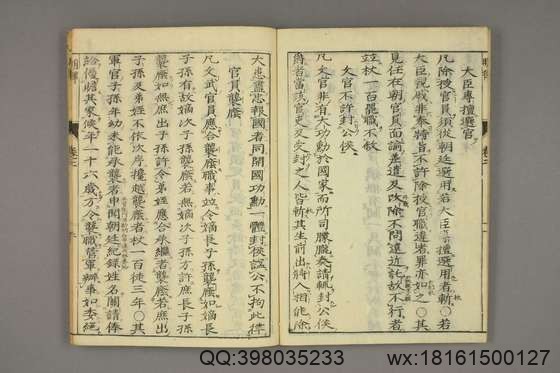 大臣專擅選官
凡除授官員須從朝廷選用若大臣專擅選用者斬○若
大臣親戚非奉特旨不許除授官職違者罪亦如之○其
見任在朝官員面諭差遣及改除不問遠近託故不行者
並杖一百罷職不敘
文官不許封公侯
凡文官非有大功勳於國家而所司朦朧奏請輒封公侯
爵者當該官吏及受封之人皆斬其生前出將入相能除
大患盡忠報國者同開國功勳一體封侯謚公不拘此律
官員襲廕
凡文武官員應合襲廕職事並令嫡長子孫襲廕如嫡長
子孫有故嫡次子孫襲廕若無嫡次子孫方許庶長子孫
襲廕如無庶出子孫許令弟姪應合承繼者襲廕若庶出
子孫及弟姪不依次序攙越襲廕者杖一百徒三年○其
軍官子孫年幼未能承襲者申聞朝廷紀錄姓名關請俸
給優贍其家候年一十六歲方令襲職管軍辦事如委絕
明律
卷二
QQ:398035233
wx:18161500127